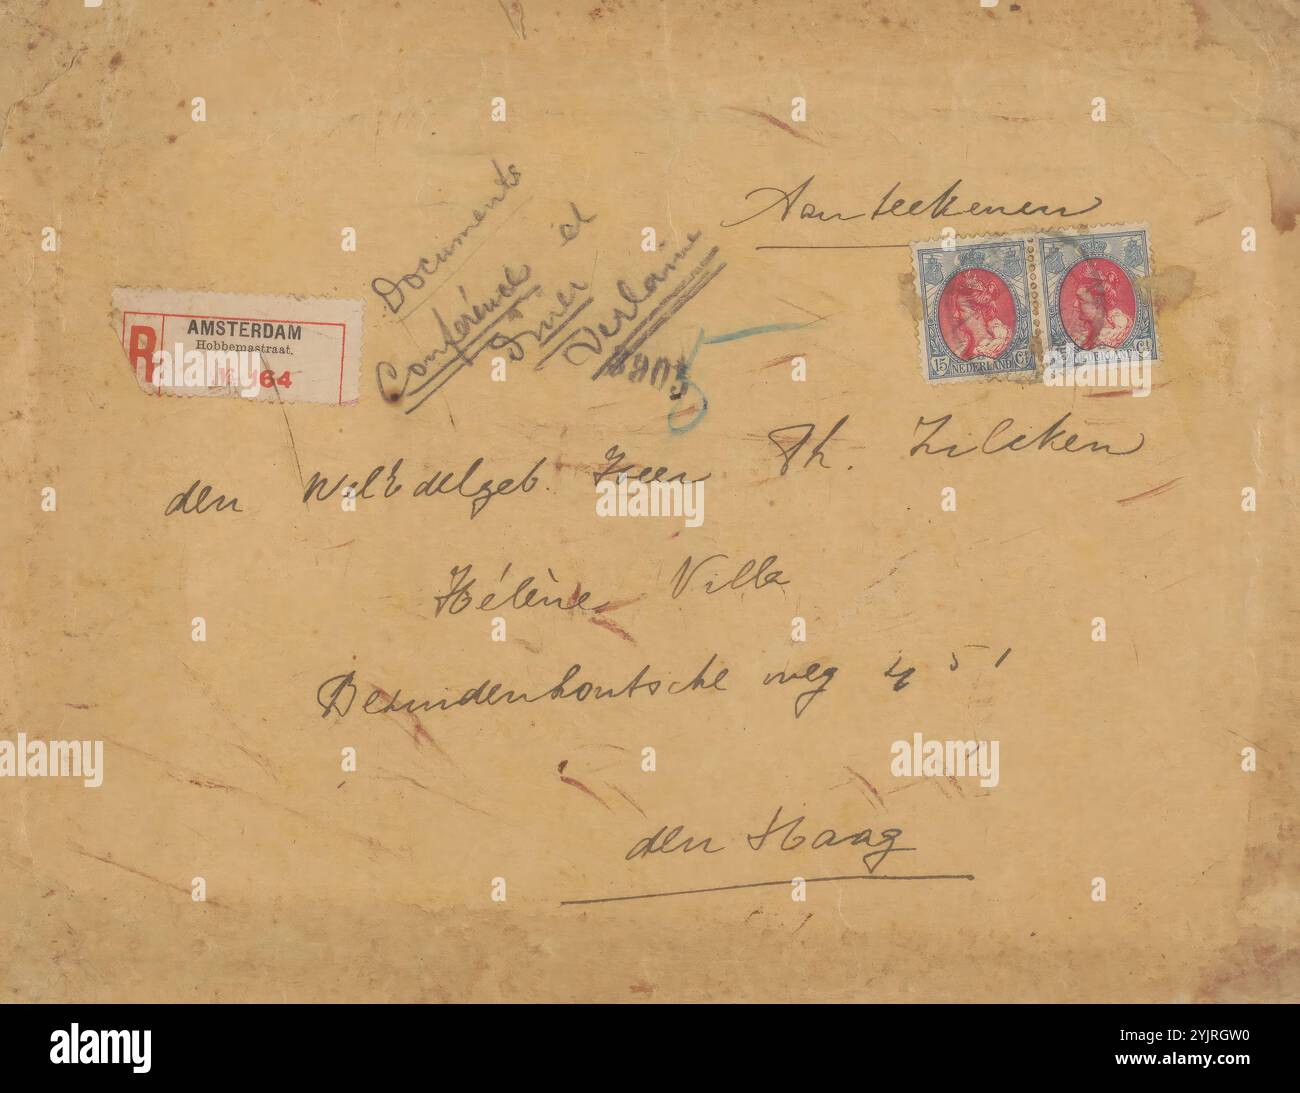 Aanteekenen
Documents
Conférence et
Diner
Verlaine
8905
5
R
AMSTERDAM
Hobbemastraat.
№ 164
15 Ct
NEDERLAND
15 Ct
NEDERLAND
den WelEdelgeb. Heer Ph. Zilcken
Hélène Villa
Bezuidenhoutsche weg
den Haag
alamy
alamy
alamy
alamy
Image ID: 2YJRGW0
www.alamy.com